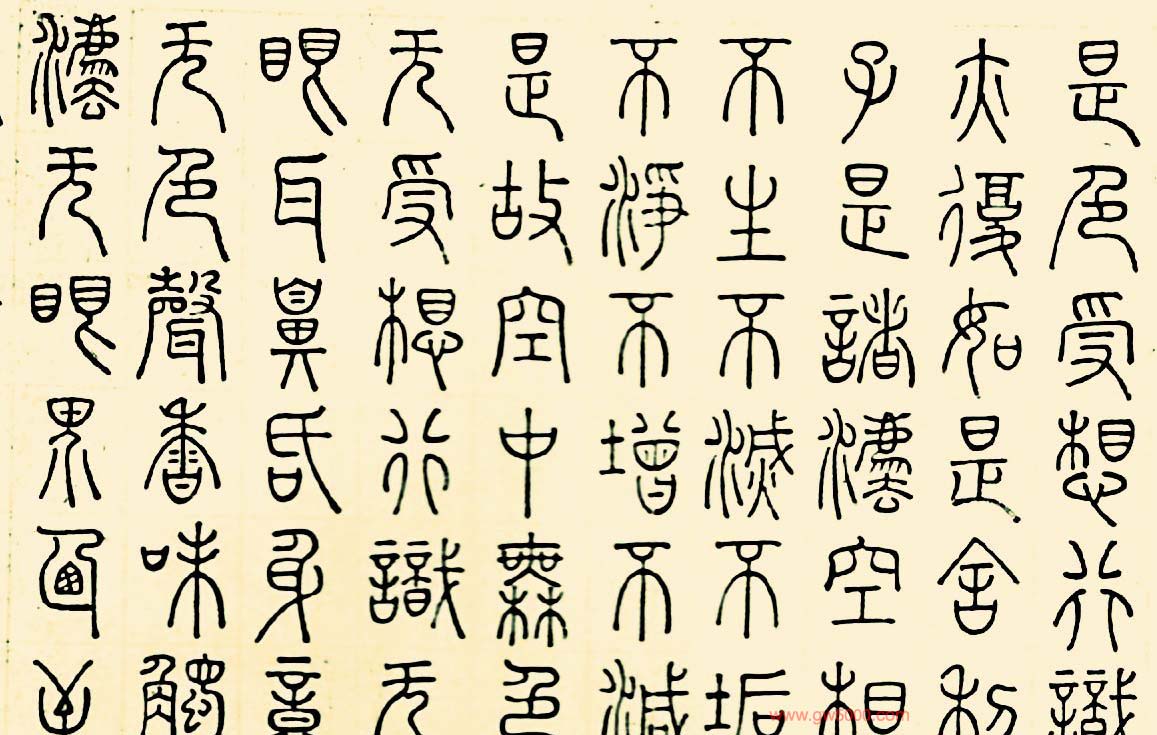 是色受想行識
亦復如是舍利
子是諸灋空相
不生不滅不垢
不淨不增不減
是故空中無色
无受想行識无
眼耳鼻舌身意
无色聲香味觸
灋无眼界迺至
www.gw5000.com